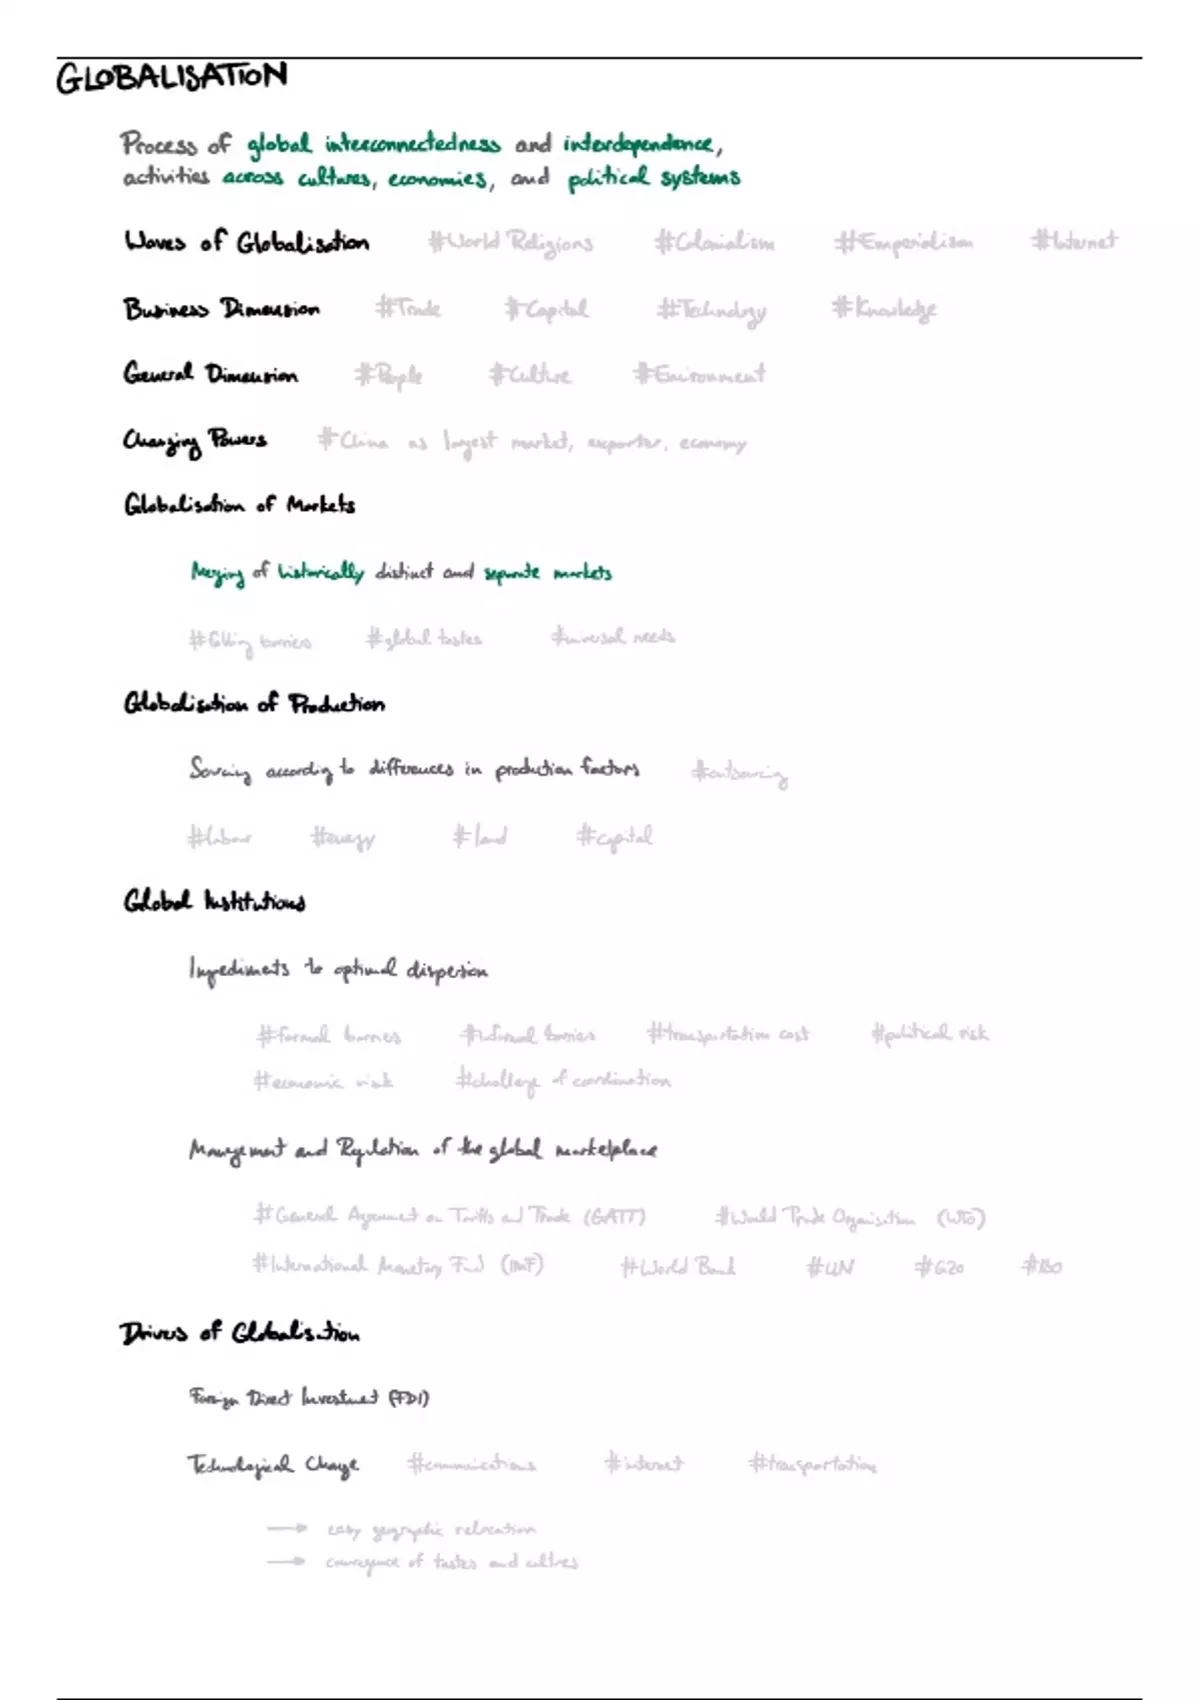 GLOBALISATION
Process of global interconnectedness and interdependence,
activities across cultures, economies, and political systems
Waves of Globalisation #World Religions #Colonialism #Emperialism #Internet
Business Dimension #Trade #Capital #Technology #Knowledge
General Dimension #People #Culture #Environment
Changing Powers #China as largest market, exporter, economy
Globalisation of Markets
Merging of historically distinct and separate markets
#falling barriers #global tastes #universal needs
Globalisation of Production
Sourcing according to differences in production factors #outsourcing
#labour #energy #land #capital
Global Institutions
Impediments to optimal dispersion
#formal barriers #informal barriers #transportation cost #political risk
#economic risk #challenge of coordination
Management and Regulation of the global marketplace
#General Agreement on Tariffs and Trade (GATT) #World Trade Organisation (WTO)
#International Monetary Fund (IMF) #World Bank #UN #G20
Drivers of Globalisation
Foreign Direct Investment (FDI)
Technological Change #communications #internet #transportation
→ easy geographic relocation
→ convergence of tastes and cultures